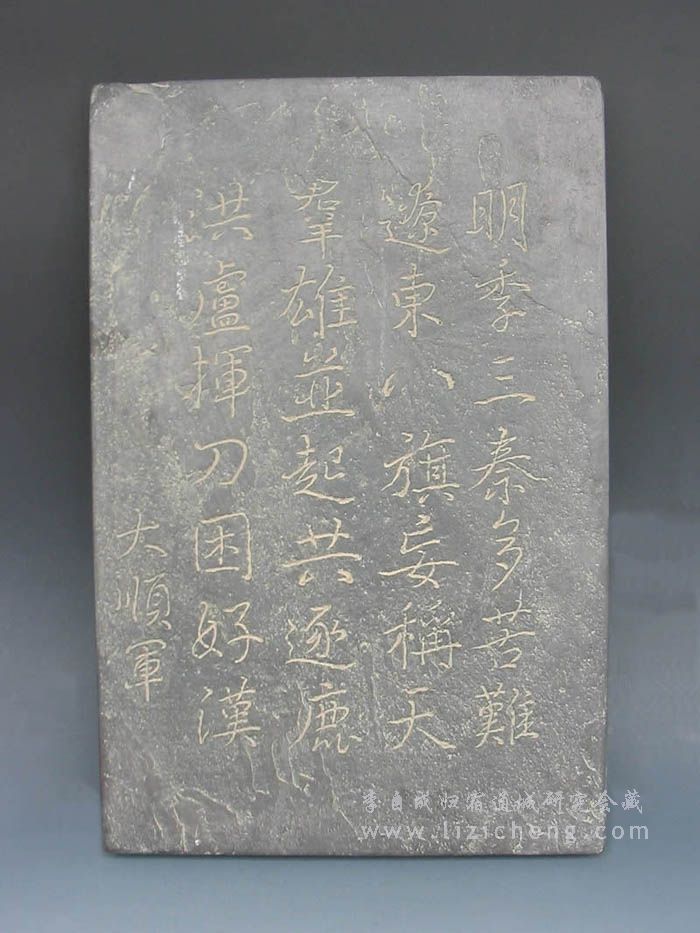 明季三秦多苦難
遼東八旗妄稱天
羣雄並起共逐鹿
洪盧揮刀困好漢
大順軍
李自成归宿通城研究会藏
www.lizicheng.com